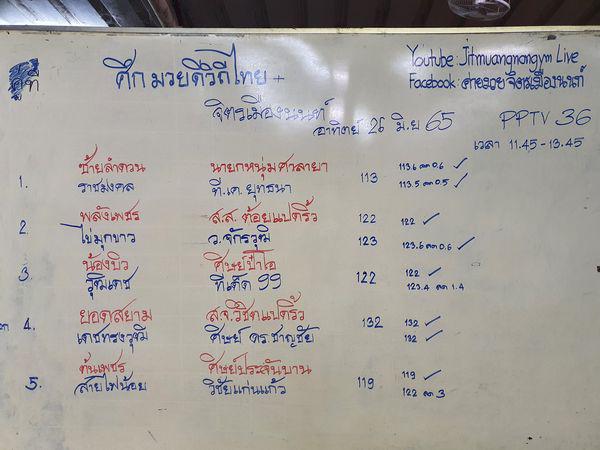 คู่ที่
ศึก มวยดีวิถีไทย +
จิตรเมืองนนท์
อาทิตย์ 26 มิ.ย 65
Youtube: Jitmuangnongym Live
Facebook: ค่ายมวย จิตรเมืองนนท์
PPTV 36
เวลา 11.45 - 13.45
1. ซ้ายลำดวน นายกหนุ่มศาลายา 113 113.6 ลด 0.6 ✓
ราชมงคล ที.เค. ยุทธนา 113.5 ลด 0.5 ✓
2. พลังเพชร ส.ส. ต้อยแปดริ้ว 122 122 ✓
ไข่มุกขาว ว.จักรวุฒิ 123 123.6 ลด 0.6 ✓
3. น้องบิว ศิษย์ป๋าไอ 122 122 ✓
วุฒิเดช ทีเด็ด 99 123.4 ลด 1.4
4. ยอดสยาม ส.จ.วิชิตแปดริ้ว 132 132 ✓
เดชทรงวุฒิ ศิษย์ ดร.ชาญชัย 132 ✓
5. ต้นเพชร ศิษย์ประจันบาน 119 119 ✓
สายไฟน้อย วิชัยแก่นแก้ว 122 ลด 3